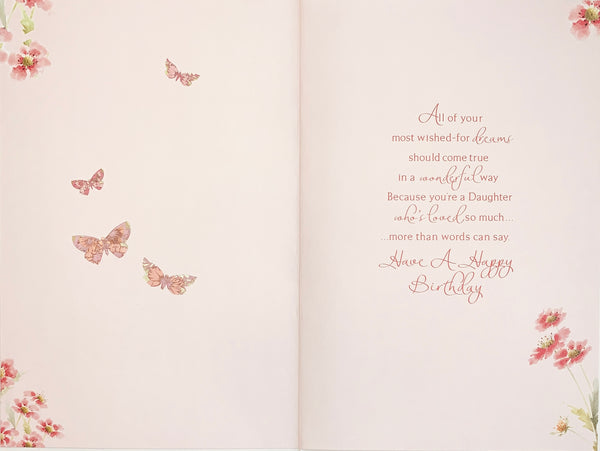 All of your
most wished-for dreams
should come true
in a wonderful way
Because you're a Daughter
who's loved so much...
...more than words can say.
Have A Happy
Birthday